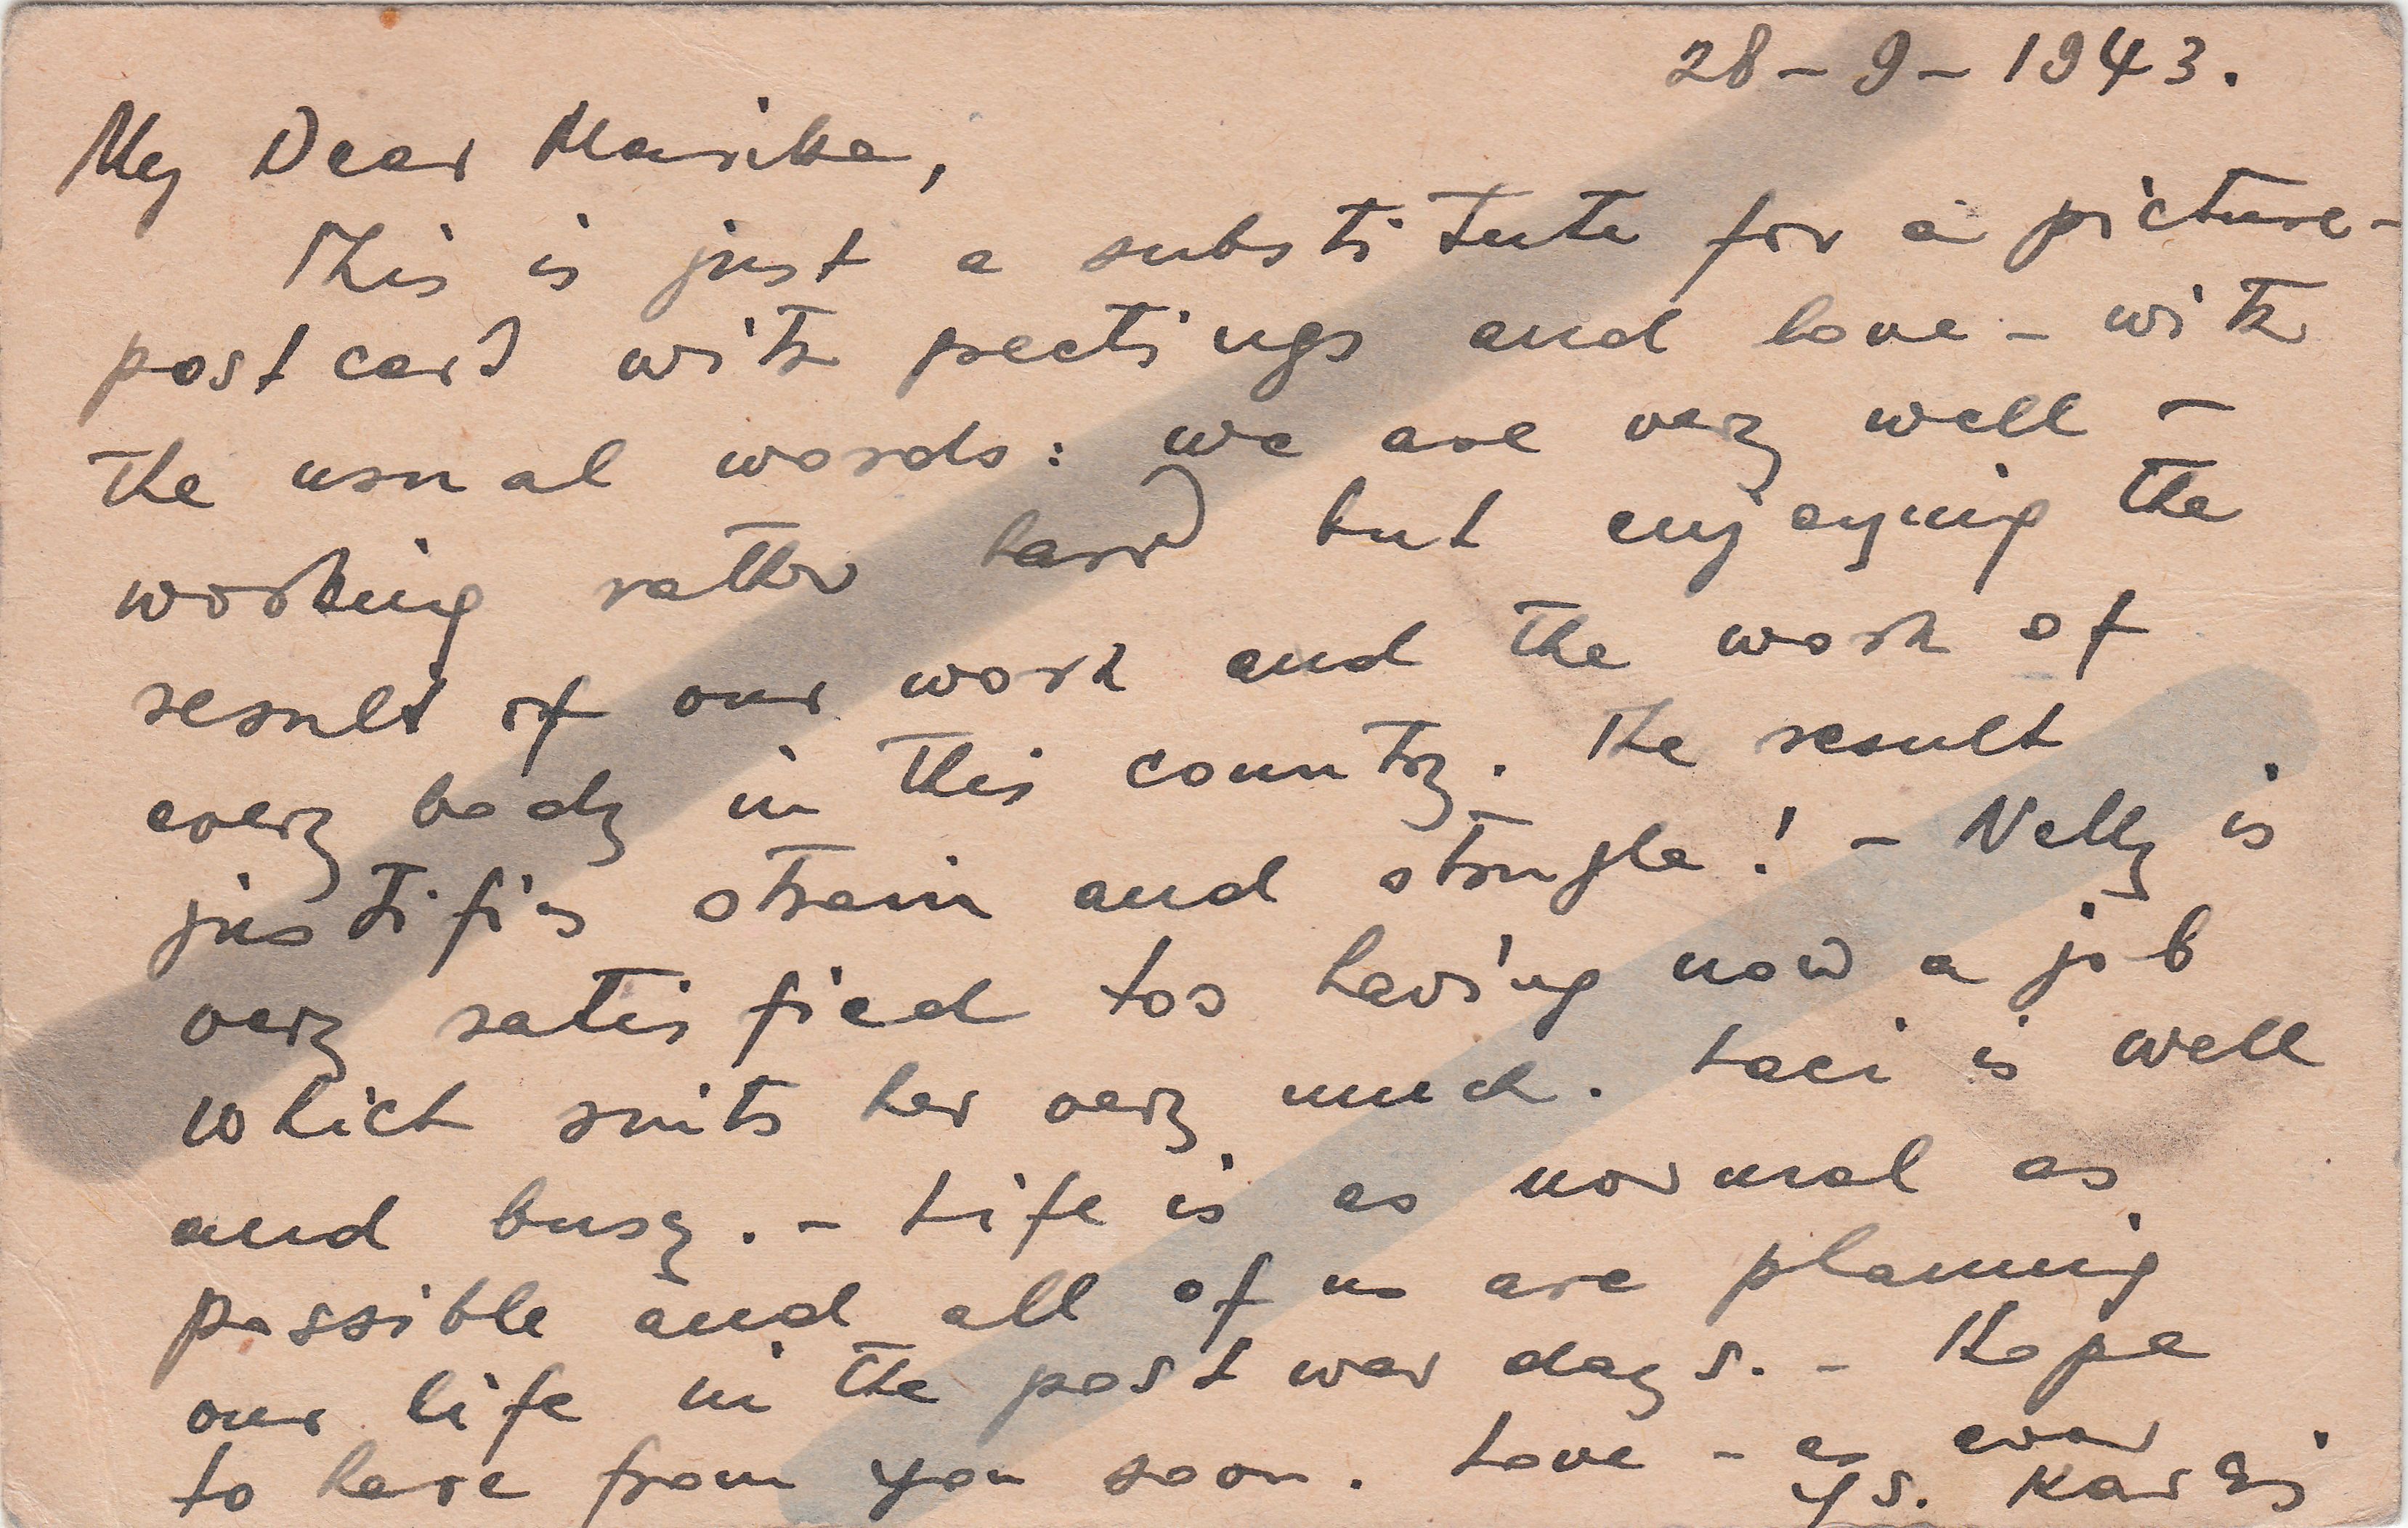 28-9-1943.
My Dear Marika,
This is just a substitute for a picture-
postcard with greetings and love - with
the usual words: we are very well -
working rather hard but enjoying the
result of our work and the work of
every body in this country. The result
justifies strain and strugle! - Nelly is
very satisfied too having now a job
which suits her very much. Laci is well
and busy. - Life is as normal as
possible and all of us are planning
our life in the post war days. - Hope
to heare from you soon. Love - as ever
Ys.